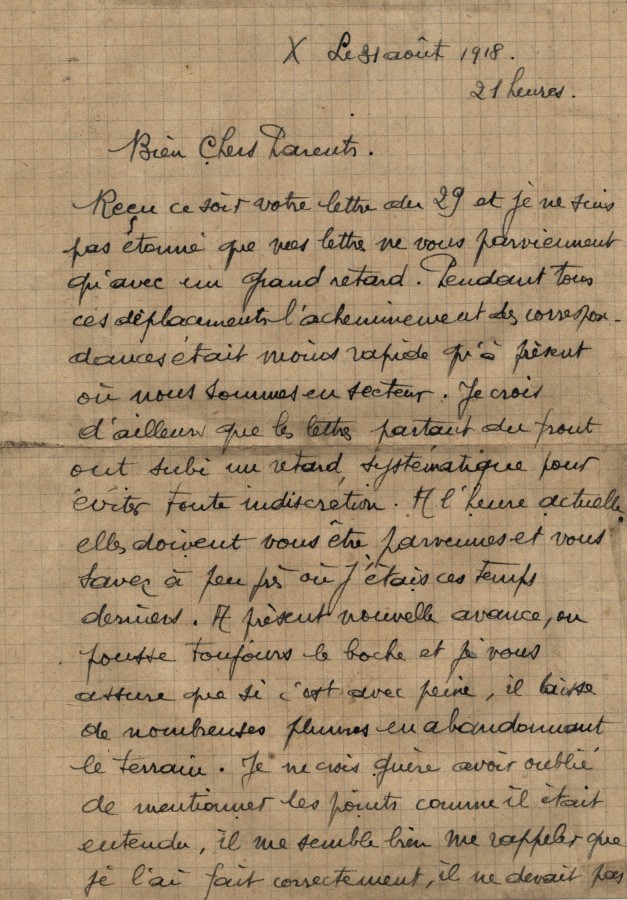 X Le 31 août 1918.
21 heures.
Bien Chers Parents.
Reçu ce soir votre lettre du 29 et je ne suis
pas étonné que mes lettre ne vous parviennent
qu'avec un grand retard. Pendant tous
ces déplacements l'acheminement des correspon-
dances était moins rapide qu'à présent
où nous sommes en secteur. Je crois
d'ailleurs que les lettres partant du front
ont subi un retard systématique pour
éviter toute indiscrétion. A l'heure actuelle
elles doivent vous être parvenues et vous
savez à peu près où j'étais ces temps
derniers. A présent nouvelle avance, on
pousse toujours le boche et je vous
assure que si c'est avec peine, il laisse
de nombreuses plumes en abandonnant
le terrain. Je ne crois guère avoir oublié
de mentionner les points comme il était
entendu, il me semble bien me rappeler que
je l'ai fait correctement, il ne devait pas